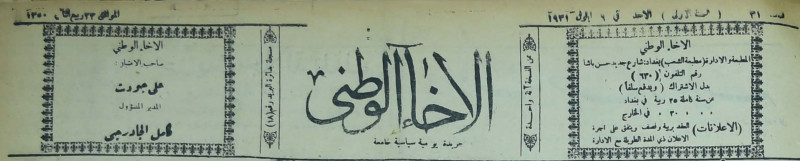 عدد ٣١ ( السنة الاولى ) الاحد في ٦ ايلول سنة ١٩٣١ الموافق ٢٣ ربيع الثاني ١٣٥٠
الاخاء الوطني
المطبعة والادارة (مطبعة الشعب) بغداد شارع جديد حسن باشا
رقم التلفون ( ٦٣٠ )
بدل الاشتراك ( ويدفع سلفاً )
عن سنة كاملة ٢٥ ربية في بغداد
٣٠ في الخارج
(الاعلانات) العقد بربية ونصف ويتفق على اجرة
الاعلان ذي المدة الطويلة مع الادارة
ثمن النسخة ٢ آنة واحدة
الاخاء الوطني
جريدة يومية سياسية جامعة
مسجلة بدائرة البريد رقم (١٨)
الاخاء الوطني
صاحب الامتياز :
علي جودت
المدير المسؤول
كامل الجادرجي